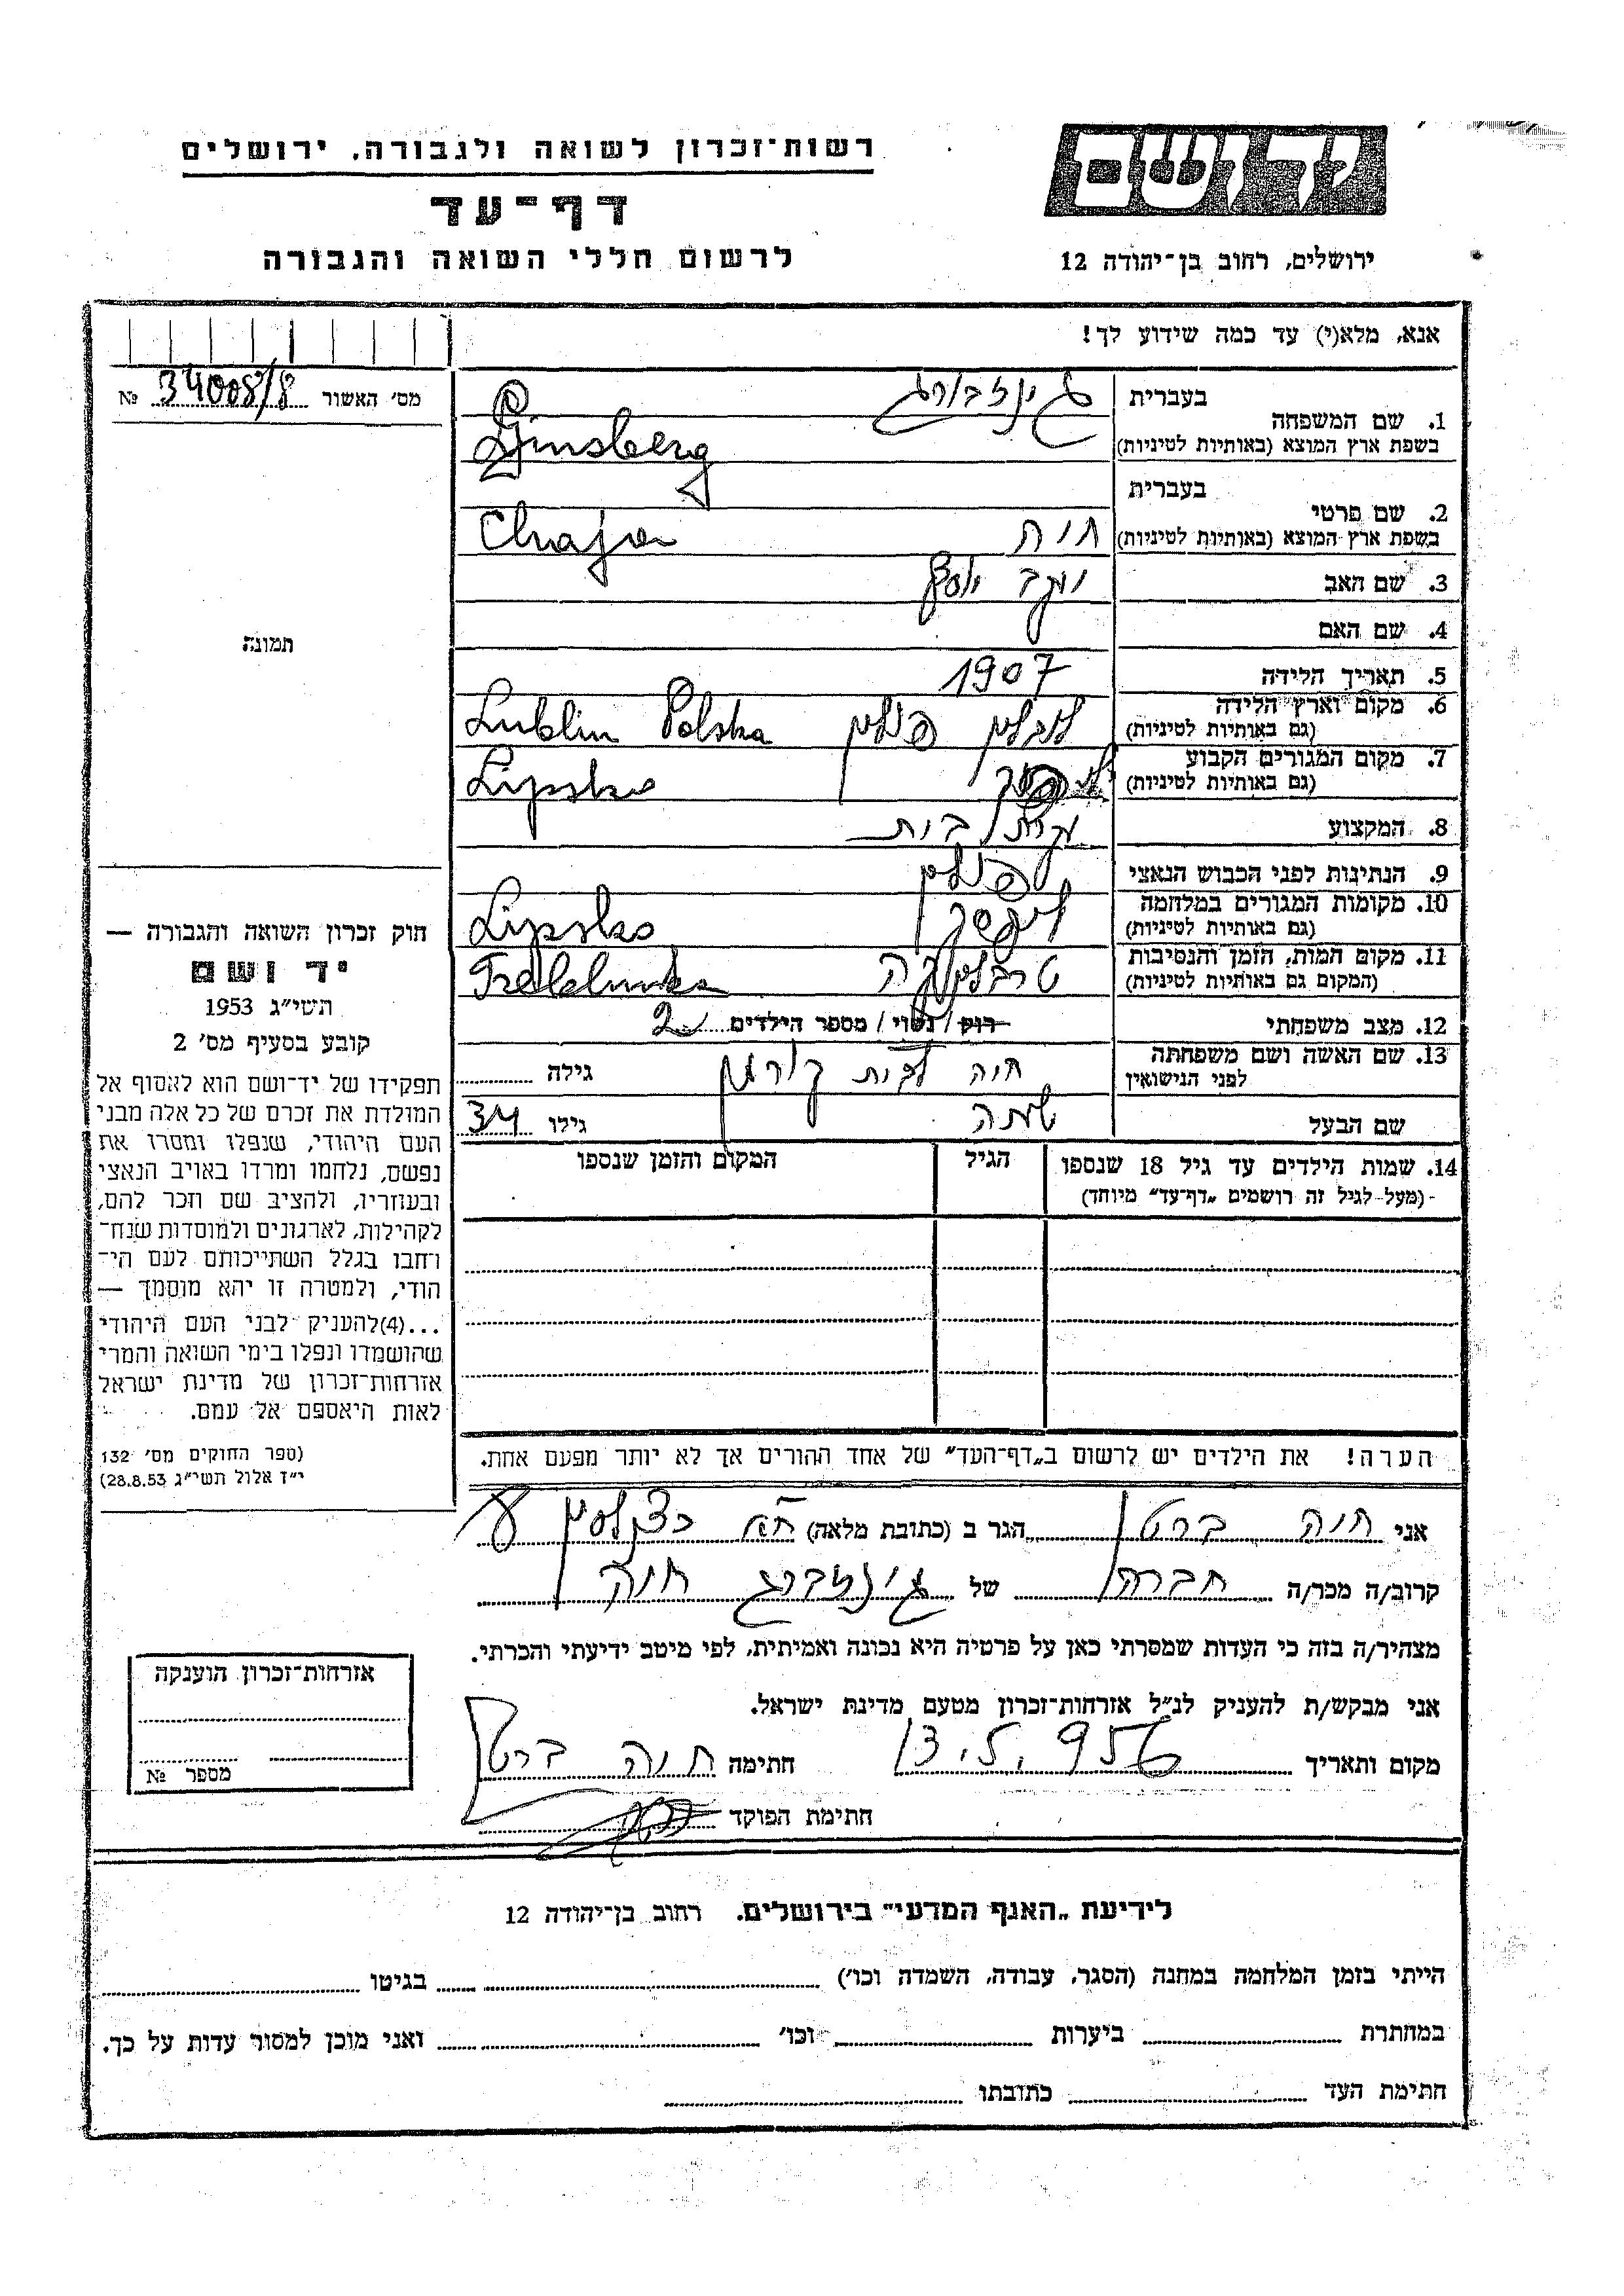 יד ושם
ירושלים, רחוב בן־יהודה 12
רשות־זכרון לשואה ולגבורה, ירושלים
דף־עד
לרשום חללי השואה והגבורה
אנא, מלא(י) עד כמה שידוע לך!
מס׳ האשור 34008/8 №
1. שם המשפחה
בעברית גינזבורג
בשפת ארץ המוצא (באותיות לטיניות) Ginsberg
2. שם פרטי
בעברית חיה
בשפת ארץ המוצא (באותיות לטיניות) Chaja
3. שם האב יעקב יוסף
4. שם האם
5. תאריך הלידה 1907
6. מקום וארץ הלידה
(גם באותיות לטיניות) לובלין פולין Lublin Polska
7. מקום המגורים הקבוע
(גם באותיות לטיניות) Lipsko
8. המקצוע עקרת בית
9. הנתינות לפני הכבוש הנאצי פולין
10. מקומות המגורים במלחמה
(גם באותיות לטיניות) ליפסק Lipsko
11. מקום המות, הזמן והנסיבות
(המקום גם באותיות לטיניות) טרבלינקה Treblinka
12. מצב משפחתי רווק / נשוי / מספר הילדים 2
13. שם האשה ושם משפחתה
לפני הנישואין חיה לבית גילה
שם הבעל שמחה גילו 34
14. שמות הילדים עד גיל 18 שנספו
- (מעל לגיל זה רושמים „דף־עד״ מיוחד)
הגיל
המקום והזמן שנספו
הערה! את הילדים יש לרשום ב„דף־העד״ של אחד ההורים אך לא יותר מפעם אחת.
תמונה
חוק זכרון השואה והגבורה —
יד ושם
תשי״ג 1953
קובע בסעיף מס׳ 2
תפקידו של יד־ושם הוא לאסוף אל
המולדת את זכרם של כל אלה מבני
העם היהודי, שנפלו ומסרו את
נפשם, נלחמו ומרדו באויב הנאצי
ובעוזריו, ולהציב שם וזכר להם,
לקהילות, לארגונים ולמוסדות שנח־
רחבו בגלל השתייכותם לעם הי־
הודי, ולמטרה זו יהא מוסמך —
...(4)להעניק לבני העם היהודי
שהושמדו ונפלו בימי השואה והמרי
אזרחות־זכרון של מדינת ישראל
לאות היאספם אל עמם.
(ספר החוקים מס׳ 132
י״ז אלול תשי״ג 28.8.53)
אני חיה ברטן הגר ב (כתובת מלאה)
קרוב/ה מכר/ה חברה של גינזברג חיה
מצהיר/ה בזה כי העדות שמסרתי כאן על פרטיה היא נכונה ואמיתית, לפי מיטב ידיעתי והכרתי.
אני מבקש/ת להעניק לנ״ל אזרחות־זכרון מטעם מדינת ישראל.
מקום ותאריך 13.5.956 חתימה חיה ברטן
חתימת הפוקד
אזרחות־זכרון הוענקה
מספר №
לידיעת „האגף המדעי״ בירושלים. רחוב בן־יהודה 12
הייתי בזמן המלחמה במחנה (הסגר, עבודה, השמדה וכו׳) בגיטו
במחתרת ביערות וכו׳ ואני מוכן למסור עדות על כך.
חתימת העד כתובתו